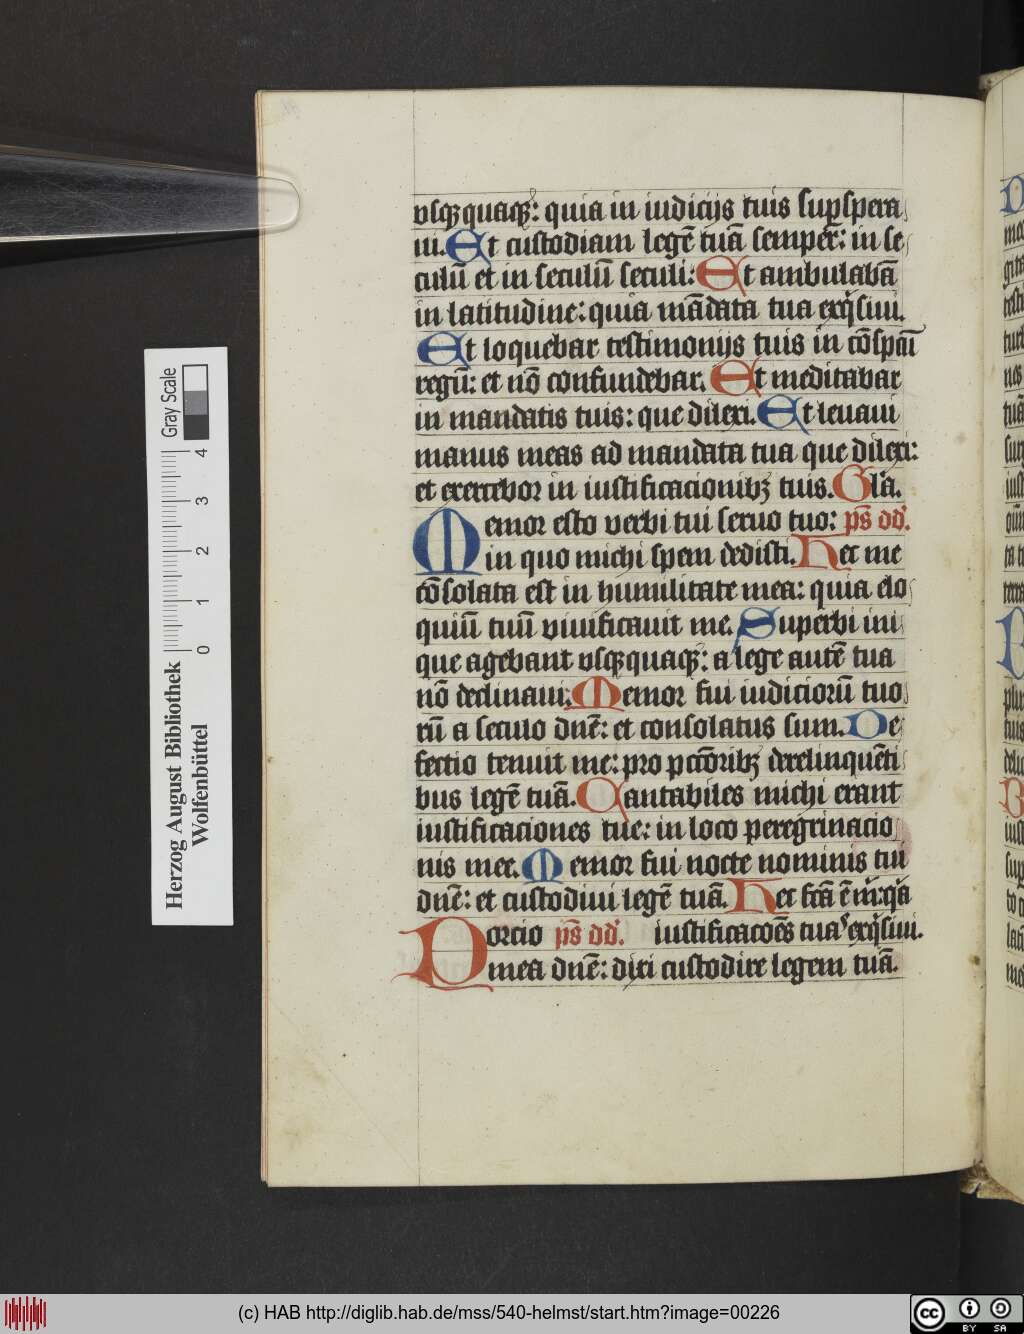 vsq̄ quaq̄: quia in iudicijs tuis sup̄spera
ui. Et custodiam legē tuā semper: in se
culū et in seculū seculi: Et ambulabā
in latitudine: quia mādata tua exq̄siui.
Et loquebar testimonijs tuis in cōspcū
regū: et nō confundebar. Et meditabar
in mandatis tuis: que dilexi. Et leuaui
manus meas ad mandata tua que dilexi:
et exercebor in iustificacionibꝫ tuis. Gl̄a.
Memor esto verbi tui seruo tuo: ps̄ dd̄.
in quo michi spem dedisti. Hec me
cōsolata est in humilitate mea: quia elo
quiū tuū viuificauit me. Superbi ini
que agebant vsq̄ quaq̄: a lege autē tua
nō declinaui. Memor fui iudiciorū tuo
rū a seculo dn̄e: et consolatus sum. De
fectio tenuit me: pro pctōribꝫ derelinquēti
bus legē tuā. Cantabiles michi erant
iustificaciones tue: in loco peregrinacio
nis mee. Memor fui nocte nominis tui
dn̄e: et custodiui legē tuā. Hec fcā ē m̄: q̄a
Porcio ps̄ dd̄. iustificacōēs tuas exq̄siui.
mea dn̄e: dixi custodire legem tuā.
Herzog August Bibliothek
Wolfenbüttel
0 1 2 3 4
Gray Scale
(c) HAB http://diglib.hab.de/mss/540-helmst/start.htm?image=00226
cc BY SA